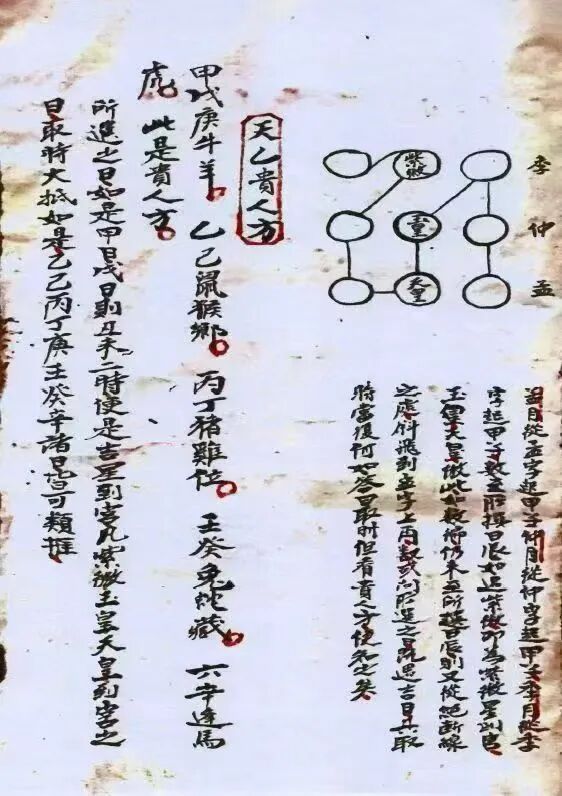 季
仲
孟
紫微
玉皇
天皇
孟月從孟字起甲子仲月從仲字起甲子季月從季
字起甲子數至所擇日辰如逢紫微即為紫微星到宮
玉皇天皇倣此十數倘仍未至所擇日辰則又從絕斷線
之處斜飛到孟字上再數或问所選之日既遇吉日其取
時當復何如答曰取时但看貴人方便知之矣
天乙貴人方
甲戊庚牛羊。乙己鼠猴鄉。丙丁猪雞位。壬癸兔蛇藏。六辛逢馬
虎。此是貴人方。
所選之日如是甲日戊日則丑未二時便是吉星到宮凡紫微玉皇天皇到宮之
日取時大抵如是乙己丙丁庚壬癸辛諸日皆可類推